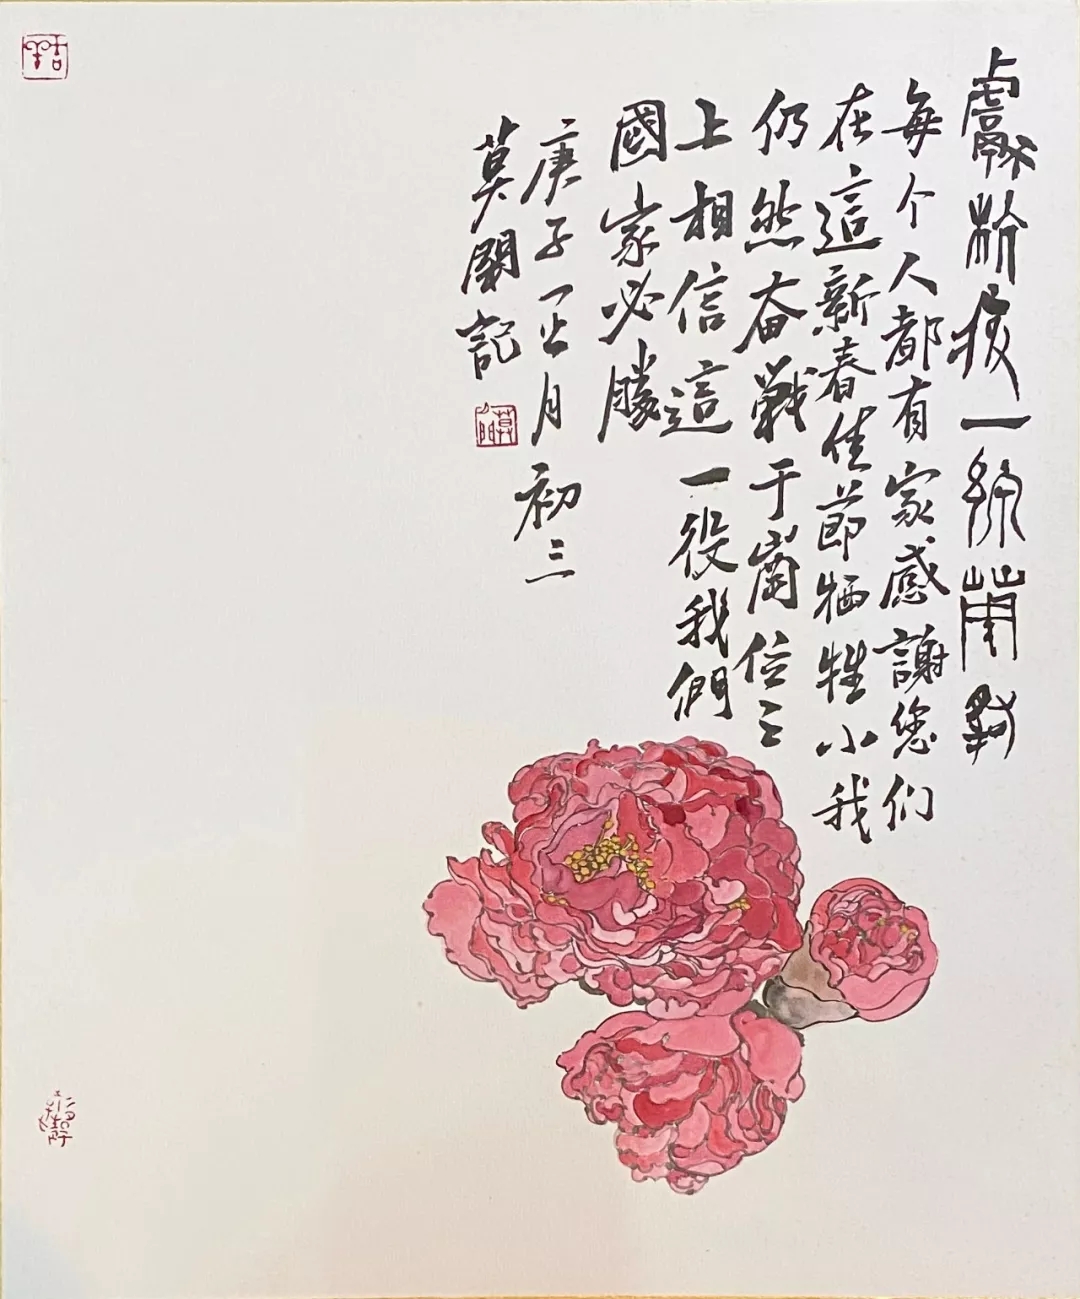 獻 疫一線
每个人都有家感謝您们
在這新春佳節牺牲小我
仍然奋戰于崗位之
上相信這一役我們
國家必勝
庚子正月初三
莫 記